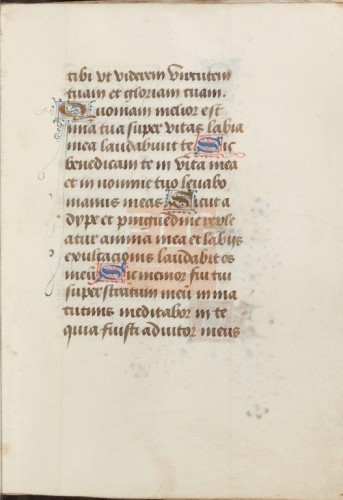 tibi vt viderem virtutem
tuam et gloriam tuam.
Quoniam melior est
mia tua super vitas labia
mea laudabunt te Sic
benedicam te in vita mea
et in nomine tuo leuabo
manus meas Sicut a
dype et pinguedine reple
atur anima mea et labijs
exultacionis laudabit os
meu Sic memor fui tui
super stratum meu in ma
tutinis meditabor in te
quia fuisti adiutor meus